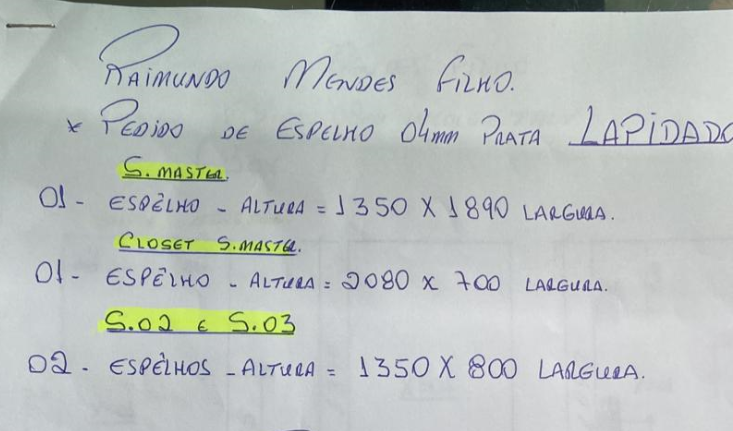 RAIMUNDO MENDES FILHO.
* PEDIDO DE ESPELHO 04mm PRATA LAPIDADO
S. MASTER.
01 - ESPÊLHO - ALTURA = 1350 X 1890 LARGURA.
CLOSET S. MASTER.
01 - ESPÊLHO - ALTURA = 2080 X 700 LARGURA.
S.02 E S.03
02 - ESPÊLHOS - ALTURA = 1350 X 800 LARGURA.